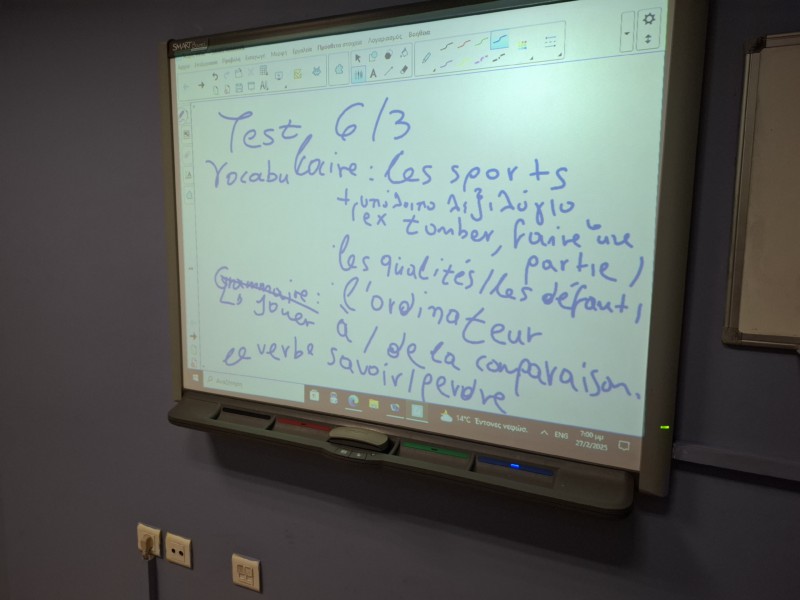 SMART
Test 6/3
Vocabulaire : les sports
+ υπόλοιπο λεξιλόγιο
(ex tomber, faire une
partie)
les qualités/les défauts,
l'ordinateur
Grammaire :
↳ jouer à / de la comparaison.
le verbe savoir/perdre
14°C Έντονες νεφώσ..
ENG
7:00 μμ
27/2/2025